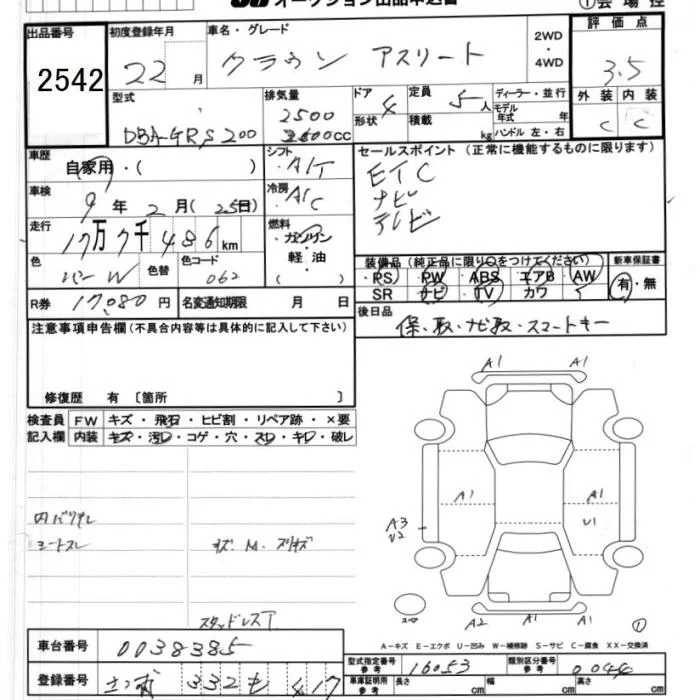 オークション出品申込書
①会場控
出品番号 2542
初度登録年月 22 月
車名・グレード クラウン アスリート
2WD・4WD
評価点 3.5
外装 C 内装 C
型式 DBA-GRS200
排気量 2500 cc
ドア形状 4
定員 5 人
積載 kg
ディーラー・並行
モデル年式 年
ハンドル 左・右
車歴 自家用・( )
シフト A/T
セールスポイント (正常に機能するものに限ります)
ETC
ナビ
テレビ
車検 9 年 2 月 (25日)
冷房 A/C
走行 17万7千486km
燃料 ガソリン・軽油・( )
色 パールW 色替
色コード 062
装備品(純正品に限り○をつけてください)
PS PW ABS エアB AW
SR ナビ TV カワ
新車保証書 有・無
R券 17,080 円
名変通知期限 月 日
後日品 保、取・ナビ取・スマートキー
注意事項申告欄(不具合内容等は具体的に記入して下さい)
修復歴 有〔箇所 〕
検査員記入欄
FW キズ・飛石・ヒビ割・リペア跡・×要
内装 キズ・汚レ・コゲ・穴・スレ・キレ・破レ
シートスレ
スタッドレスT
A1 A1
A1 A1
U1
A3
U2
A2 A1 A1
①
A-キズ E-エクボ U-凹み W-補修跡 S-サビ C-腐食 XX-交換済
車台番号 0038385
登録番号 332 も 417
型式指定番号 参考 16053
類別区分番号 参考 0044
車庫証明用 参考 長さ cm 幅 cm 高さ cm